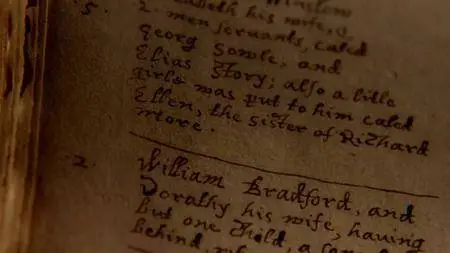 Winslow
5. Elizabeth his wife, &
2. men servants, caled
Georg Sowle, and
Elias Story; also a litle
girle was put to him caled
Ellen, the sister of Richard
More.
2. William Bradford, and
Dorathy his wife, having
but one child, a sone
behind, who